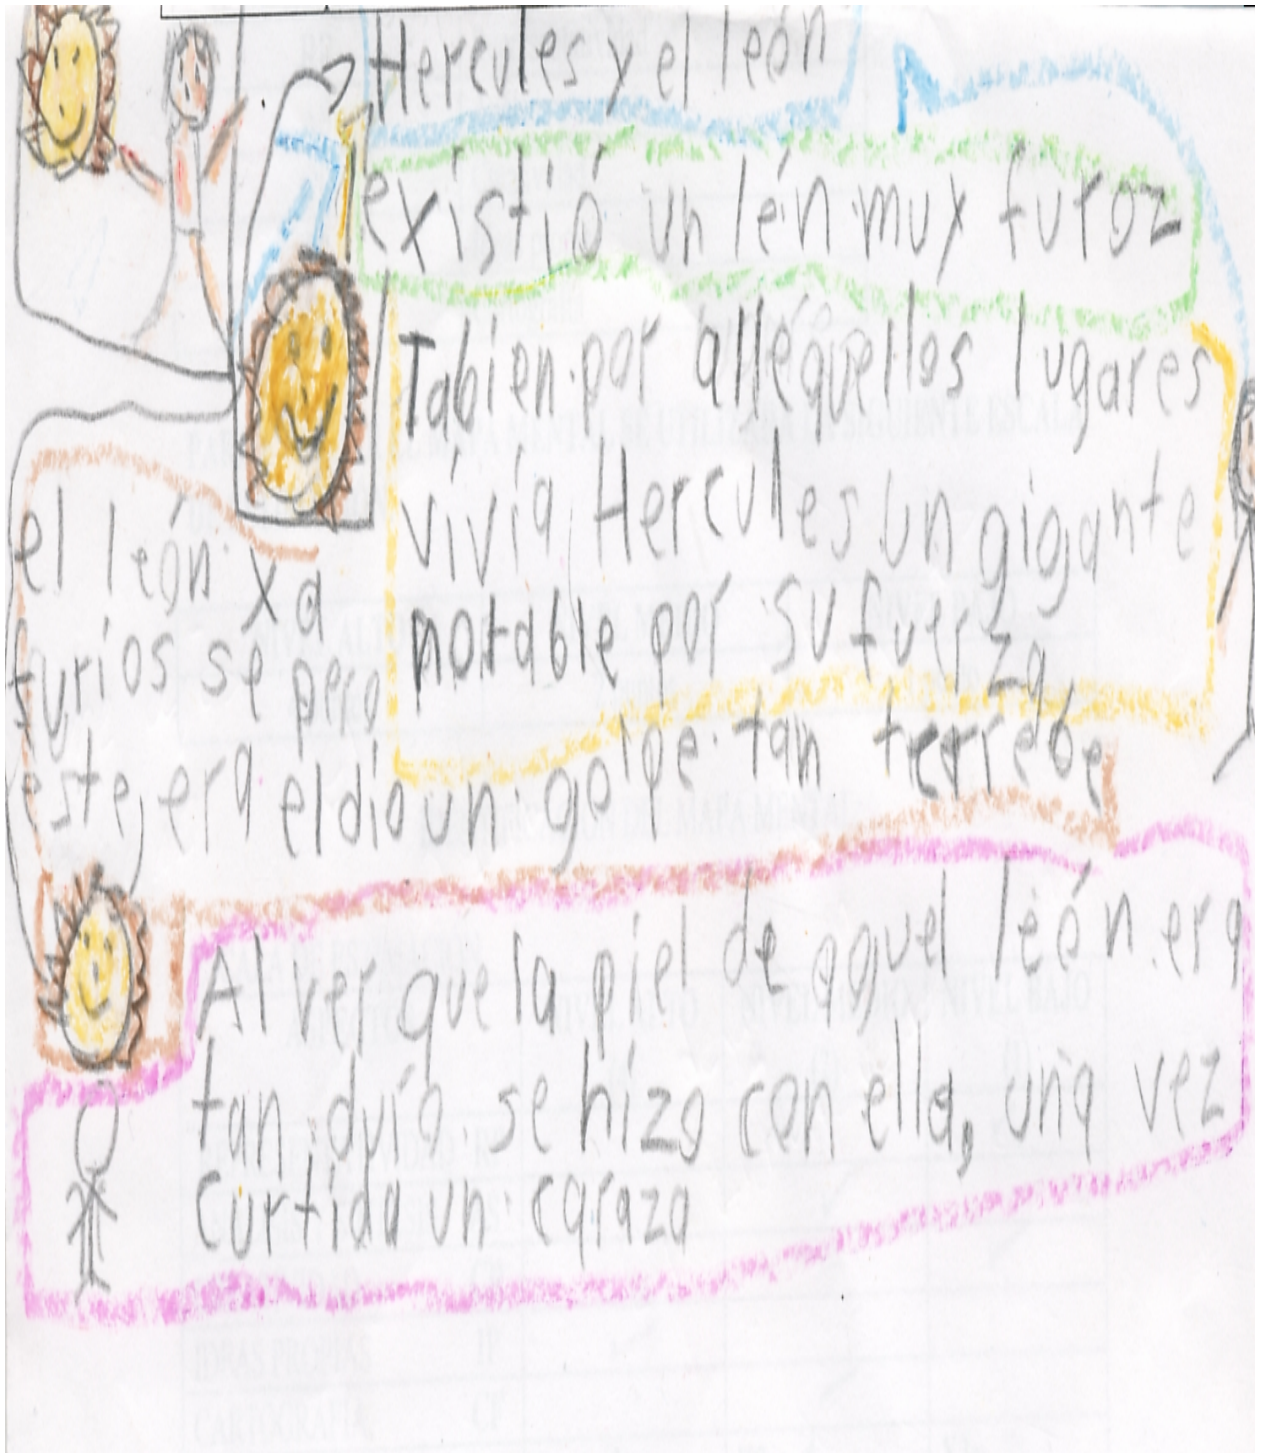 Hercules y el león
existió un león muy furoz
Tabien por alléquellos lugares
vivía Hercules un gigante
notable por su fuerza
el león xa
furios se pero
este, era el dio un golpe tan terrebe
Al ver que la piel de aquel león era
tan duía se hizo con ella, una vez
curtida un caraza